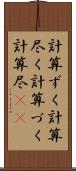 計算ずく計算
尽く計算づく
計算尽